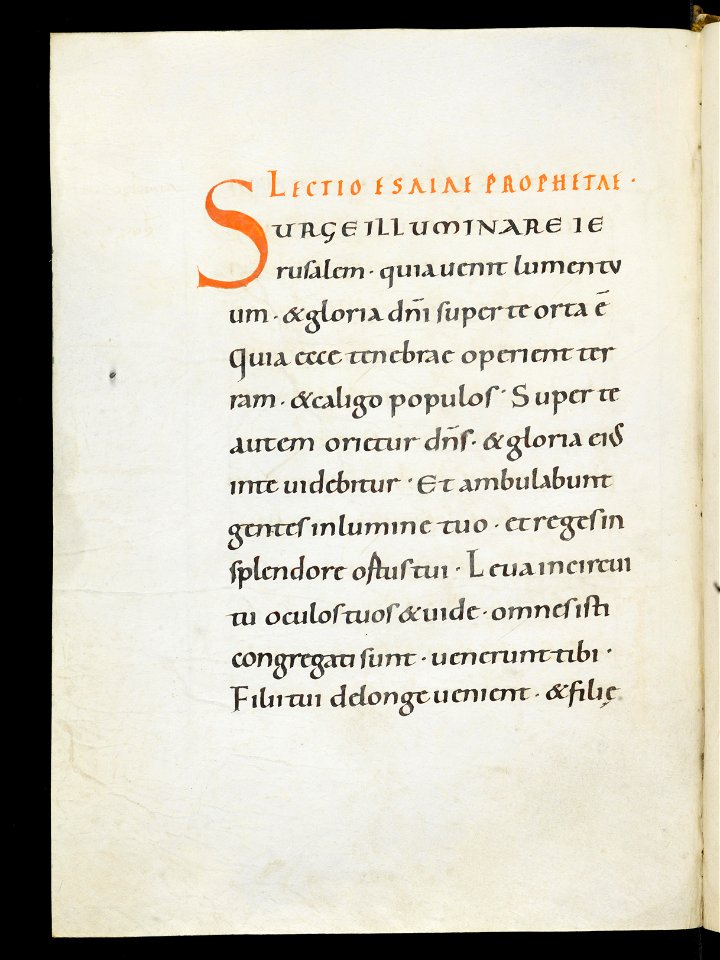 LECTIO ESAIAE PROPHETAE ·
SURGE ILLUMINARE IE
rusalem · quia uenit lumen tu
um · & gloria dn̄i super te orta ē
Quia ecce tenebrae operient ter
ram · & caligo populos · Super te
autem orietur dn̄s · & gloria eiꝰ
in te uidebitur · Et ambulabunt
gentes in lumine tuo · et reges in
splendore ortus tui · Leua in circui
tu oculos tuos & uide · omnes isti
congregati sunt · uenerunt tibi ·
Filii tui de longe uenient · & filię